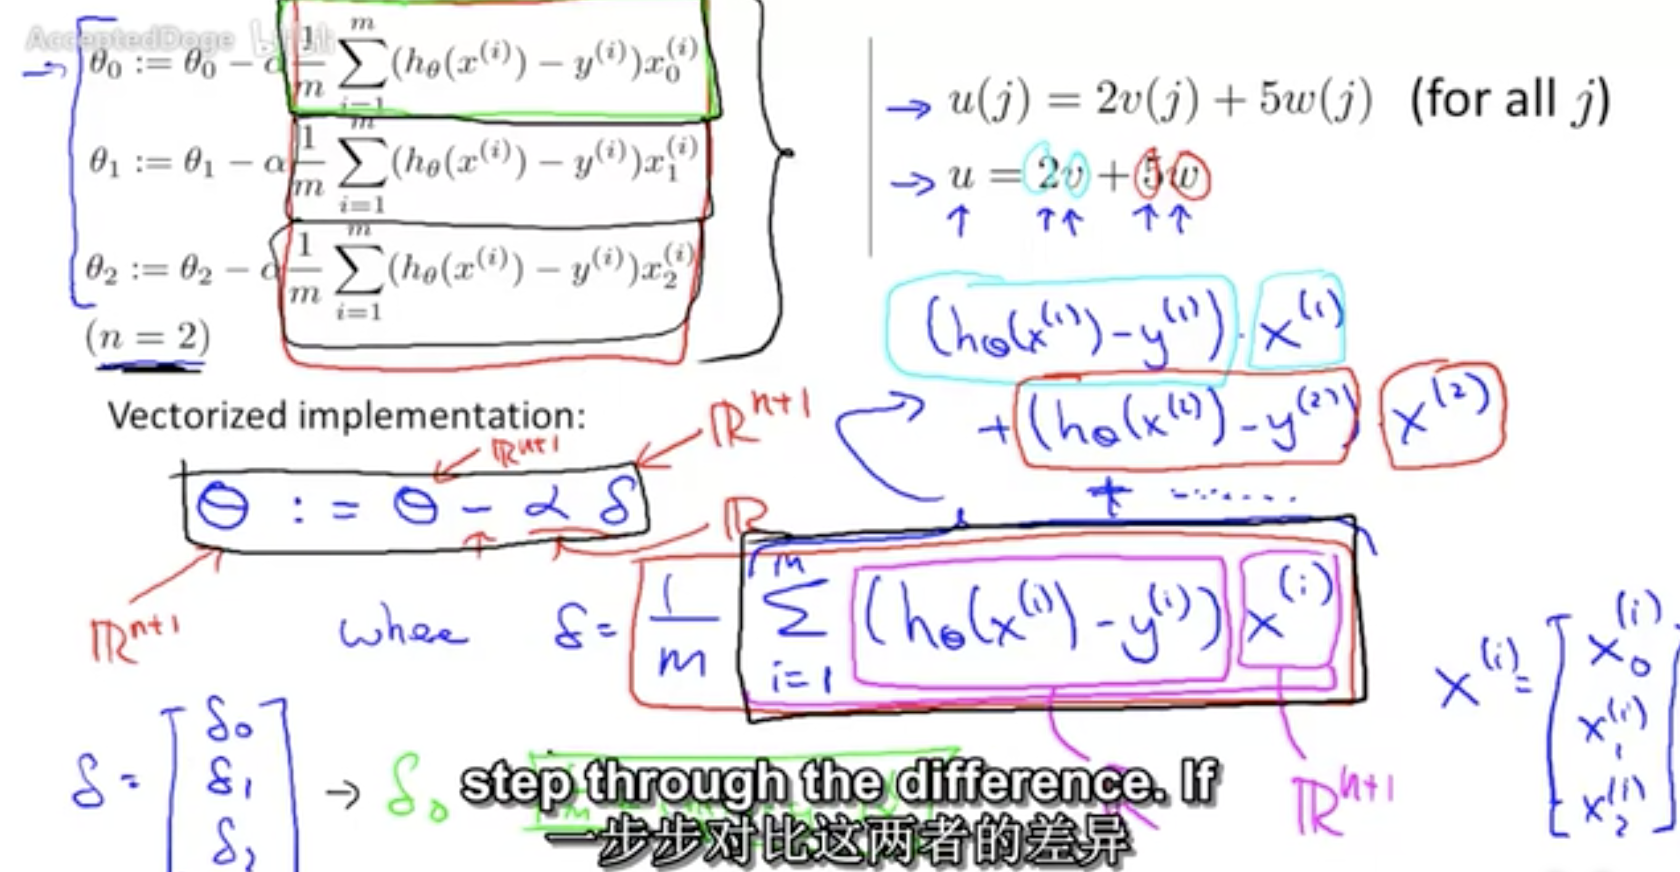 AcceptedDoge bilibili
θ₀ := θ₀ − α 1/m ∑_{i=1}^{m} (h_θ(x^{(i)}) − y^{(i)})x₀^{(i)}
θ₁ := θ₁ − α 1/m ∑_{i=1}^{m} (h_θ(x^{(i)}) − y^{(i)})x₁^{(i)}
θ₂ := θ₂ − α 1/m ∑_{i=1}^{m} (h_θ(x^{(i)}) − y^{(i)})x₂^{(i)}
(n = 2)
→ u(j) = 2v(j) + 5w(j) (for all j)
→ u = 2v + 5w
(h_θ(x^{(1)}) − y^{(1)}) · x^{(1)}
+ (h_θ(x^{(2)}) − y^{(2)}) x^{(2)}
+ .......
Vectorized implementation:
ℝ^{n+1}
ℝ^{n+1}
θ := θ − α δ
ℝ
ℝ^{n+1}
where δ = 1/m ∑_{i=1}^{m} (h_θ(x^{(i)}) − y^{(i)}) x^{(i)}
x^{(i)} = [x₀^{(i)} x₁^{(i)} x₂^{(i)}]
δ = [δ₀ δ₁ δ₂] → δ₀
ℝ
ℝ^{n+1}
step through the difference. If
一步步对比这两者的差异